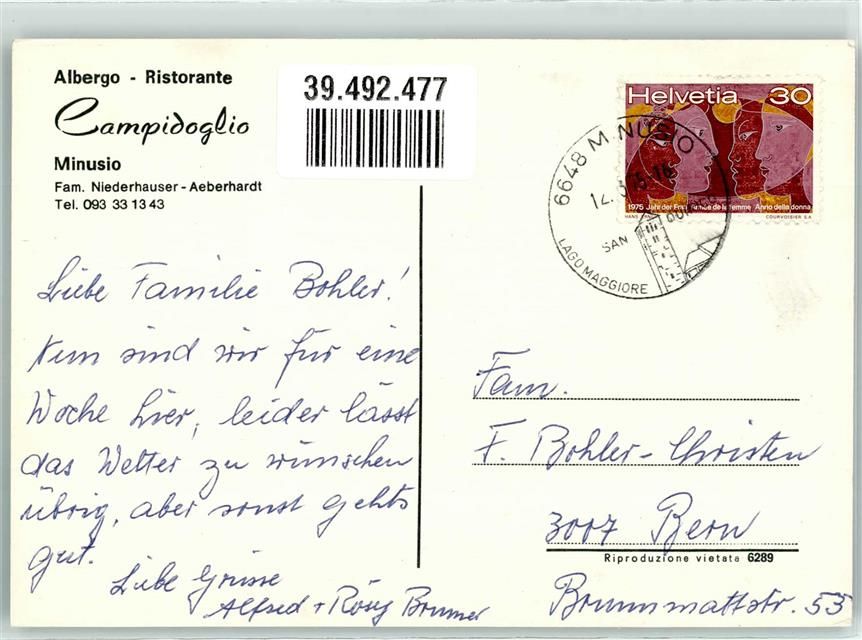 Albergo - Ristorante
Campidoglio
Minusio
Fam. Niederhauser - Aeberhardt
Tel. 093 33 13 43
39.492.477
Helvetia 30
1975 Jahr der Frau Année de la femme Anno della donna
COURVOISIER S.A.
6648 MINUSIO
12.3.75-16
SAN QUIRICO
LAGO MAGGIORE
Liebe Familie Bohler!
Nun sind wir für eine
Woche hier, leider lässt
das Wetter zu wünschen
übrig, aber sonst gehts
gut.
Liebe Grüsse
Alfred + Rösy Brunner
Fam.
F. Bohler-Christen
3007 Bern
Riproduzione vietata 6289
Brunnmattstr. 53